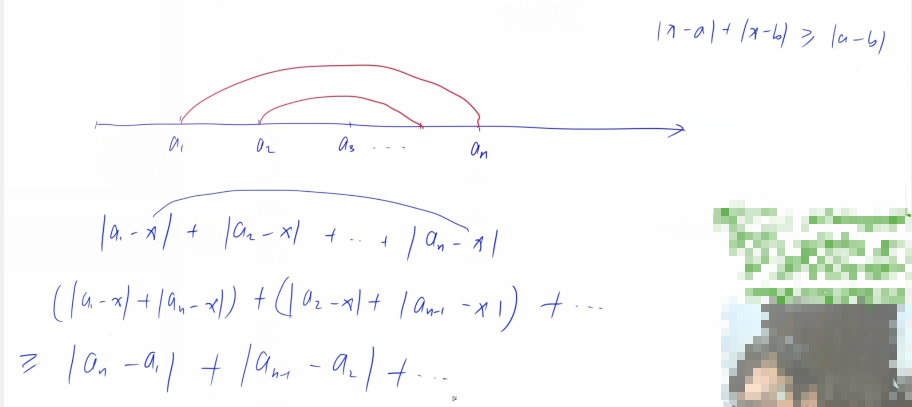 |x-a| + |x-b| ≥ |a-b|
a₁ a₂ a₃ .... aₙ
|a₁-x| + |a₂-x| + ... + |aₙ-x|
(|a₁-x|+|aₙ-x|) + (|a₂-x|+ |aₙ₋₁-x|) + ...
≥ |aₙ-a₁| + |aₙ₋₁-a₂| + ...